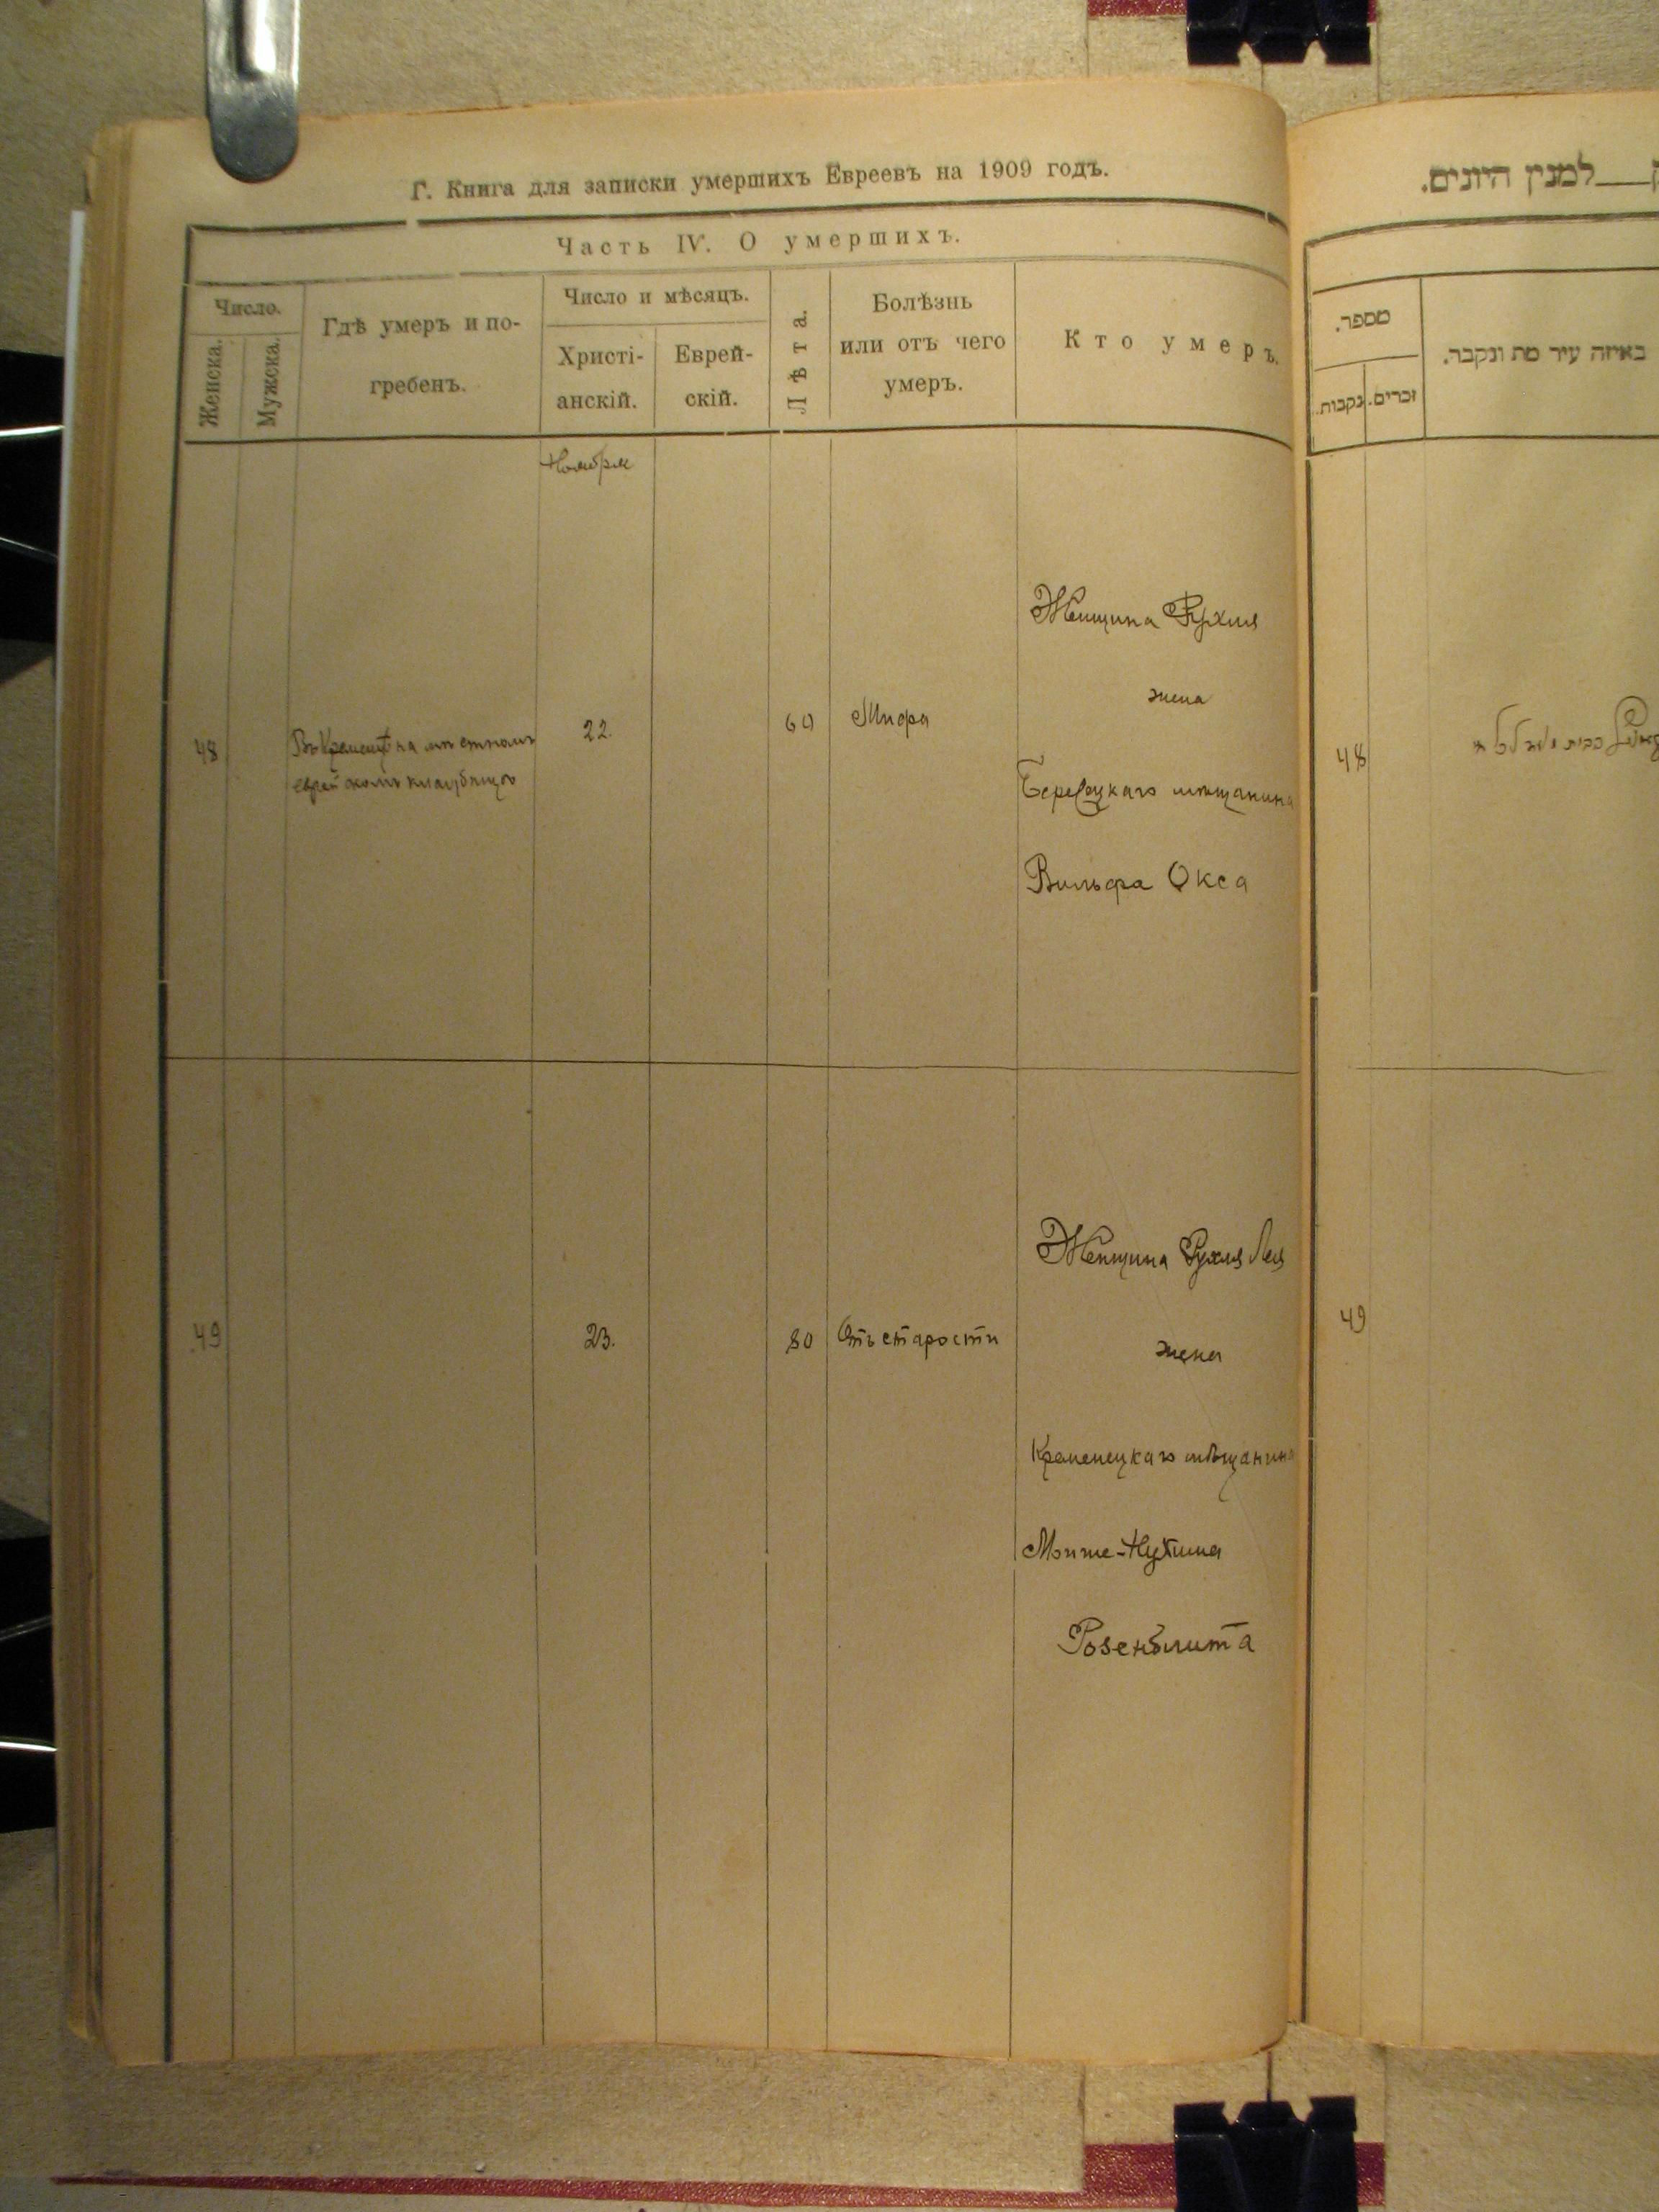 Г. Книга для записки умершихъ Евреевъ на 1909 годъ.
Часть IV. О умершихъ.
Число.
Женска.
Мужска.
Гдѣ умеръ и по-
гребенъ.
Число и мѣсяцъ.
Христі-
анскій.
Еврей-
скій.
Лѣта.
Болѣзнь
или отъ чего
умеръ.
Кто умеръ.
Ноября
48
Въ Кременцѣ на мѣстномъ
еврейскомъ кладбищѣ
22.
60
Тифа
Женщина Рухля
жена
Березецкаго мѣщанина
Вольфа Окса
49
23.
80
Отъ старости
Женщина Рухля Лея
жена
Кременецкаго мѣщанина
Мошше-Нухима
Розенблита
למנין היונים.
מספר.
נקבות.
זכרים.
באיזה עיר מת ונקבר.
48
49